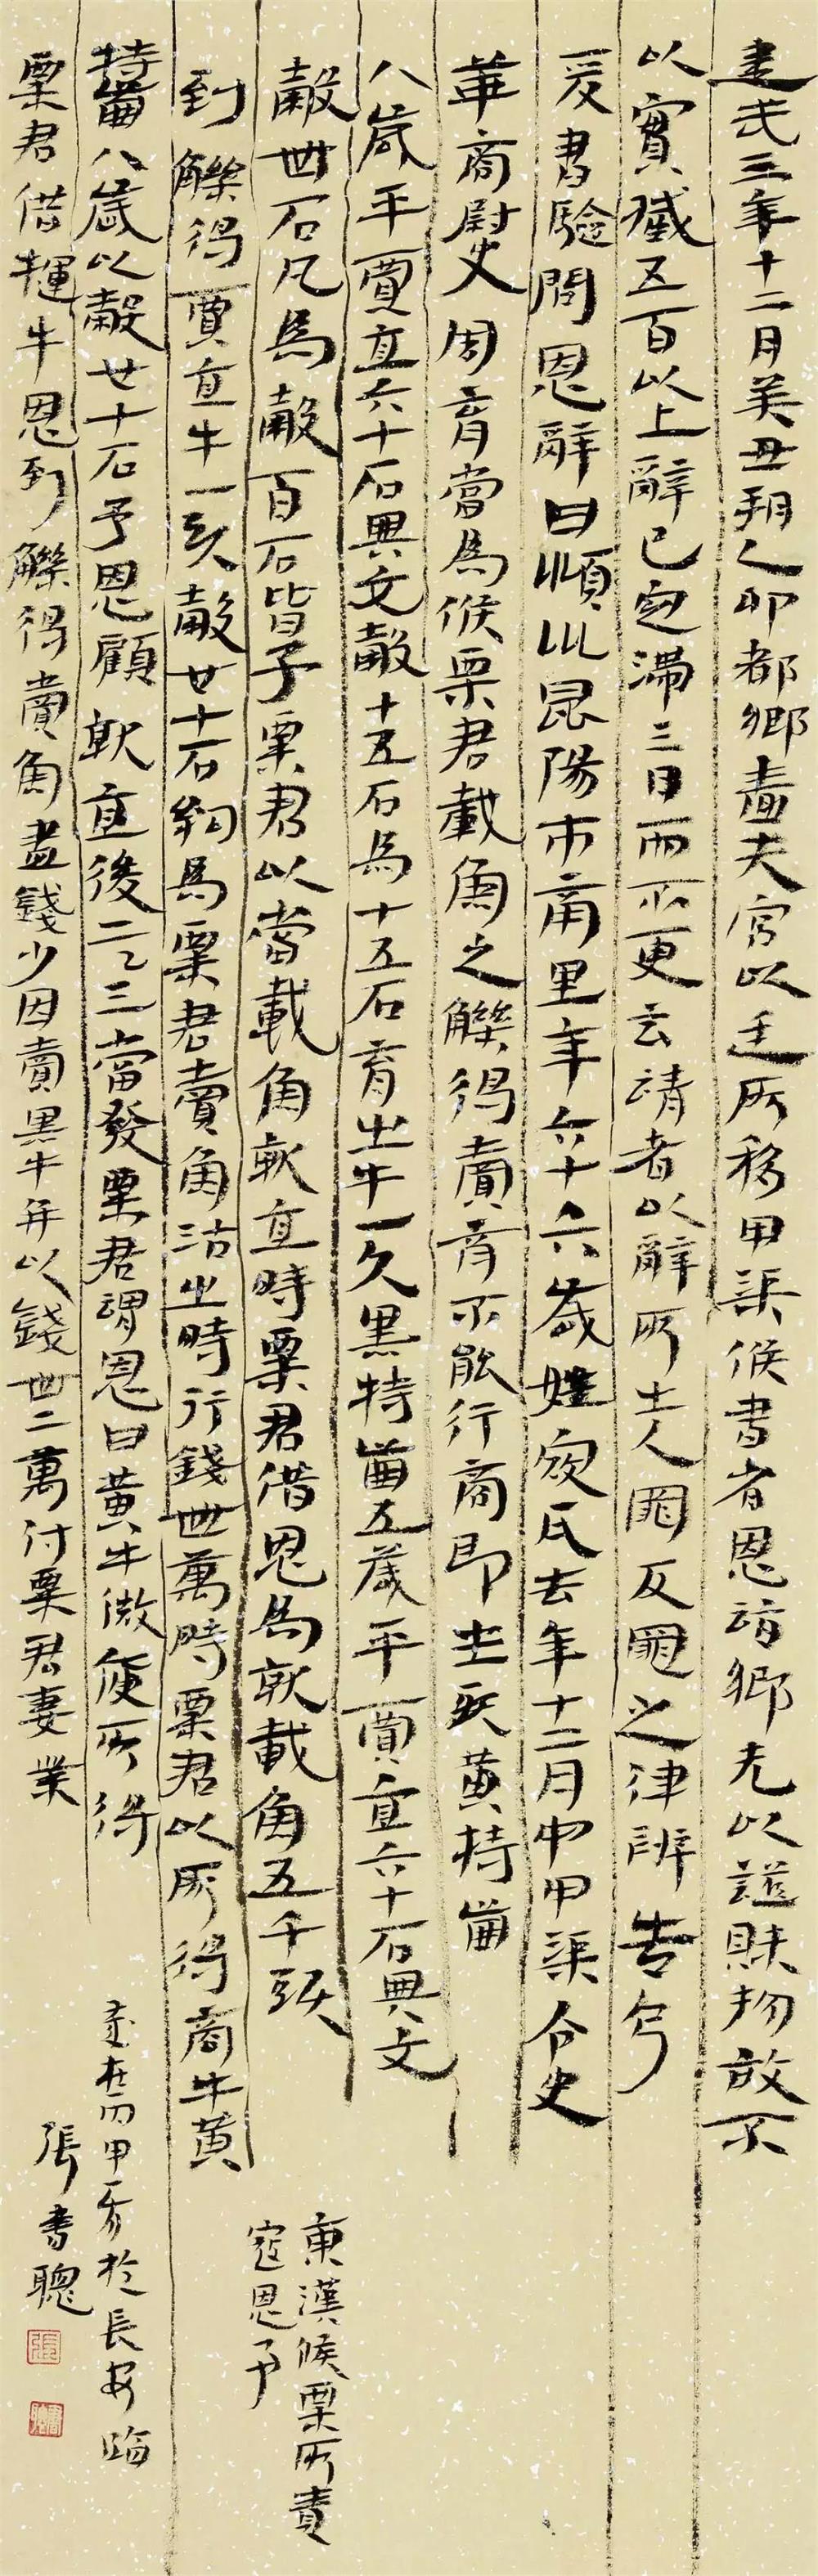 建武三年十二月癸丑朔乙卯都鄉嗇夫宮以廷所移甲渠候書召恩詣鄉先以證財物故不
以實臧五百以上辭已定滿三日而不更言請者以辭所出入罪反罪之律辨告乃
爰書驗問恩辭曰潁川昆陽市南里年六十六歲姓寇氏去年十二月中甲渠令史
華商尉史周育當為候粟君載魚之觻得賣育不能行商即出牛黃特齒
八歲平賈直六十石與交穀十五石為十五石育出牛一頭黑特齒五歲平賈直六十石與交
穀卌石凡為穀百石皆予粟君以當載魚就直時粟君借恩為就載魚五千頭
到觻得賈直牛一頭穀廿十石約為粟君賣魚沽出時行錢卌萬時粟君以所得商牛黃
特齒八歲以穀廿十石予恩顧就直後二三當發粟君謂恩曰黃牛微庾所得
粟君借犍牛恩到觻得賣魚盡錢少因賣黑牛并以錢卅二萬付粟君妻業
東漢候粟所責
寇恩事
於長安臨
張書聰